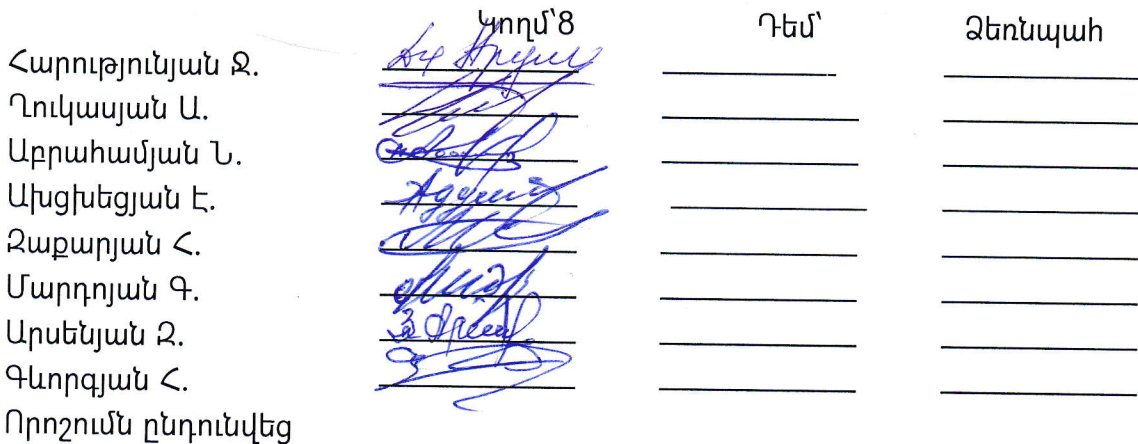 Կողմ՝8 Դեմ՝ Ձեռնպահ
Հարությունյան Ջ.
Ղուկասյան Ա.
Աբրահամյան Ն.
Ախցխեցյան Է.
Զաքարյան Հ.
Մարդոյան Գ.
Արսենյան Զ.
Գևորգյան Հ.
Որոշումն ընդունվեց